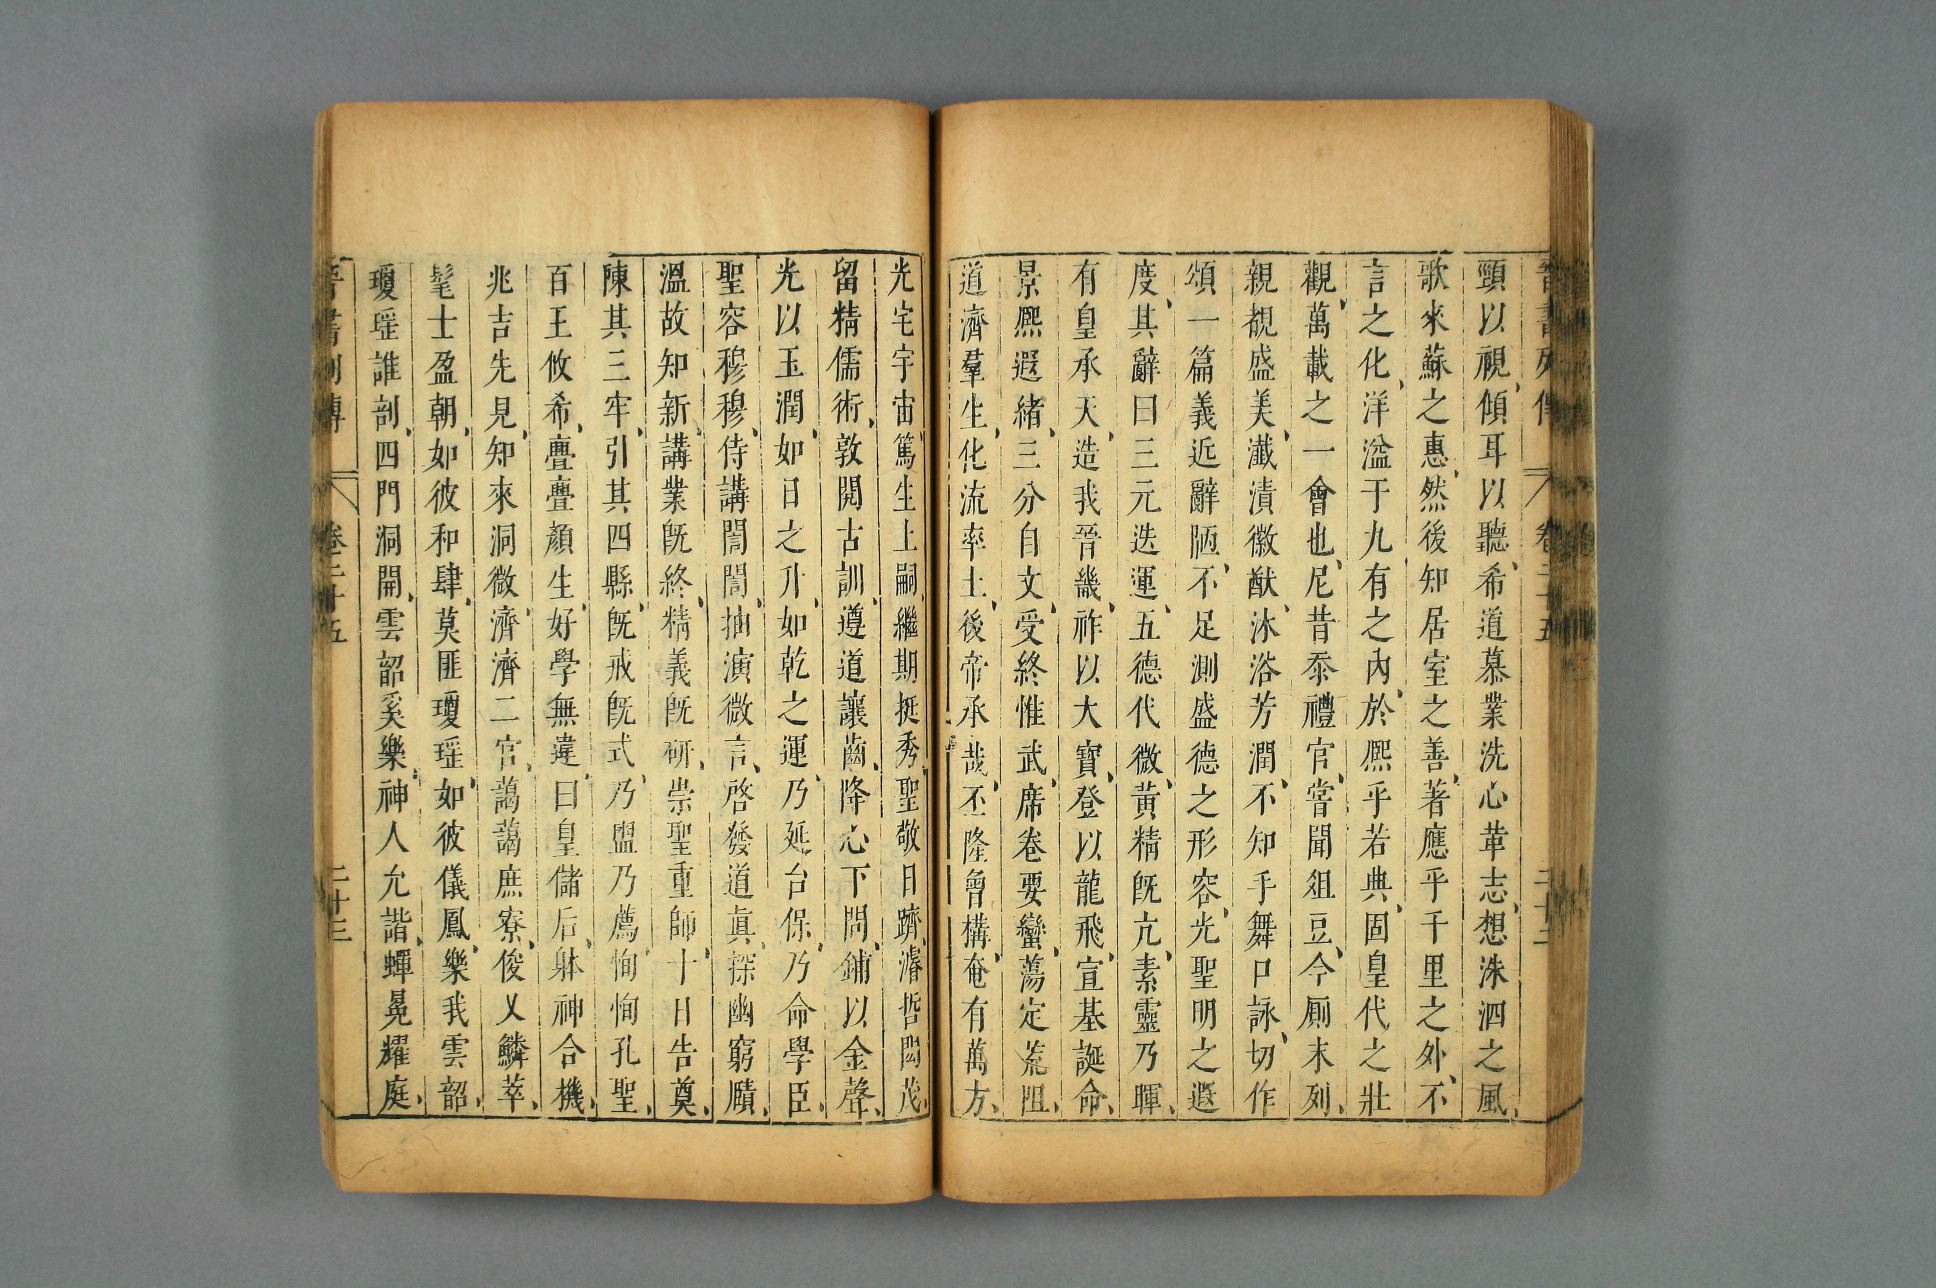 晉書列傳 卷二十五 二十二
頸以視、傾耳以聽、希道慕業、洗心革志、想洙泗之風、
歌來蘇之惠、然後知居室之善、著應乎千里之外、不
言之化、洋溢于九有之內、於熙乎若典、固皇代之壯
觀、萬載之一會也、尼昔忝禮官、嘗聞俎豆、今廁末列、
親覩盛美、瀸漬徽猷、沐浴芳潤、不知手舞口詠、切作
頌一篇義近辭陋、不足測盛德之形容、光聖明之遐
度、其辭曰三元迭運、五德代微、黃精旣亢、素靈乃暉、
有皇承天、造我晉畿、祚以大寶、登以龍飛、宣基誕命、
景熙遐緒、三分自文、受終惟武、席卷要蠻、蕩定荒阻、
道濟羣生、化流率土、後帝承哉、丕隆曾構、奄有萬方、
光宅宇宙、篤生上嗣、繼期挺秀、聖敬日躋、濬哲閎茂、
留精儒術、敦閱古訓、遵道讓齒、降心下問、鋪以金聲、
光以玉潤、如日之升、如乾之運、乃延台保、乃命學臣、
聖容穆穆、侍講誾誾、抽演微言、啓發道眞、探幽窮賾、
溫故知新、講業旣終、精義旣硏、崇聖重師、十日告奠、
陳其三牢、引其四縣、旣戒旣式、乃盥乃薦、恂恂孔聖、
百王攸希、亹亹顏生、好學無違、曰皇儲后、躰神合機、
兆吉先見、知來洞微、濟濟二宮、藹藹庶寮、俊乂鱗萃、
髦士盈朝、如彼和肆、莫匪瓊瑶、如彼儀鳳、樂我雲韶、
瓊瑶誰剖、四門洞開、雲韶奚樂、神人允諧、蟬冕耀庭、
晉書列傳 卷二十五 二十三